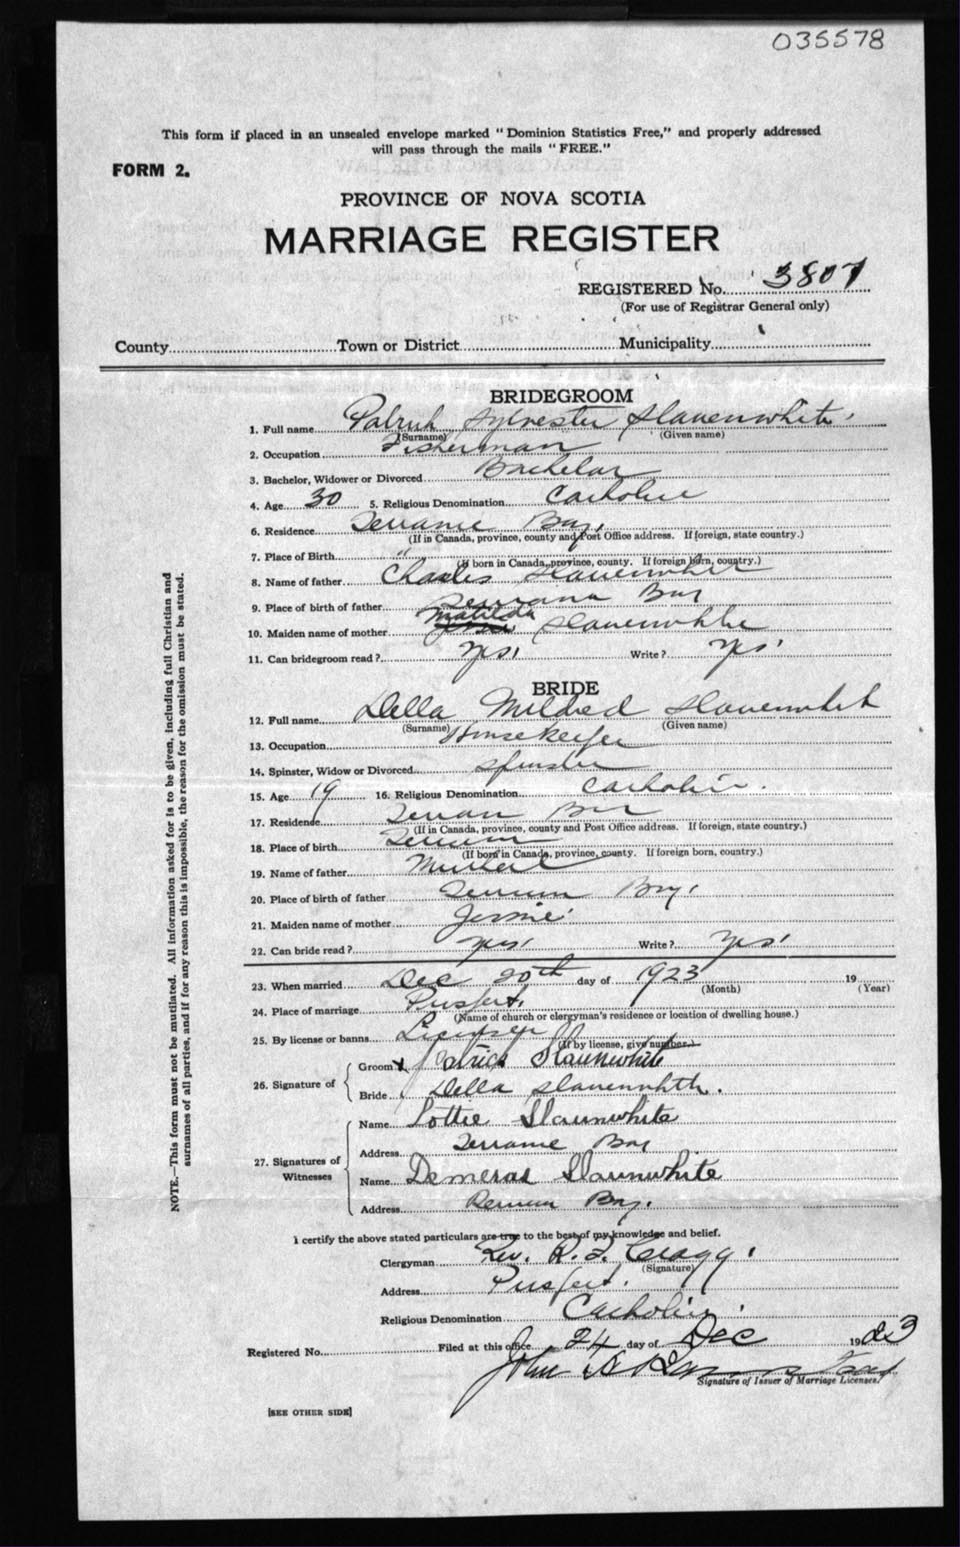 035578
This form if placed in an unsealed envelope marked "Dominion Statistics Free," and properly addressed
will pass through the mails "FREE."
FORM 2.
PROVINCE OF NOVA SCOTIA
MARRIAGE REGISTER
REGISTERED No. 3807
(For use of Registrar General only)
County Town or District Municipality
BRIDEGROOM
1. Full name Patrick Sylvester Slauenwhite
(Surname) (Given name)
2. Occupation Fisherman
3. Bachelor, Widower or Divorced Bachelor
4. Age 30 5. Religious Denomination Catholic
6. Residence Terrance Bay
(If in Canada, province, county and Post Office address. If foreign, state country.)
7. Place of Birth "
(If born in Canada, province, county. If foreign born, country.)
8. Name of father Charles Slauenwhite
9. Place of birth of father Bay
10. Maiden name of mother Matilda Slauenwhite
11. Can bridegroom read? Yes Write? Yes
BRIDE
12. Full name Della Mildred Slauenwhit
(Surname) (Given name)
13. Occupation Housekeeper
14. Spinster, Widow or Divorced Spinster
15. Age 19 16. Religious Denomination Catholic.
17. Residence Bay
(If in Canada, province, county and Post Office address. If foreign, state country.)
18. Place of birth
(If born in Canada, province, county. If foreign born, country.)
19. Name of father
20. Place of birth of father Bay
21. Maiden name of mother Jessie
22. Can bride read? Yes Write? Yes
23. When married Dec 20th day of 1923 19
(Month) (Year)
24. Place of marriage
(Name of church or clergyman's residence or location of dwelling house.)
25. By license or banns
(If by license, give number.)
26. Signature of
Groom x Patrick Slaunwhite
Bride Della Slauenwhth.
27. Signatures of Witnesses
Name Lottie Slaunwhite
Address Terrance Bay
Name Demeras Slaunwhite
Address Bay.
I certify the above stated particulars are true to the best of my knowledge and belief.
Clergyman Rev.
(Signature)
Address
Religious Denomination Catholic
Registered No. Filed at this office 24 day of Dec 1923
John
Signature of Issuer of Marriage Licenses.
[SEE OTHER SIDE]
NOTE.—This form must not be mutilated. All information asked for is to be given, including full Christian and
surnames of all parties, and if for any reason this is impossible, the reason for the omission must be stated.